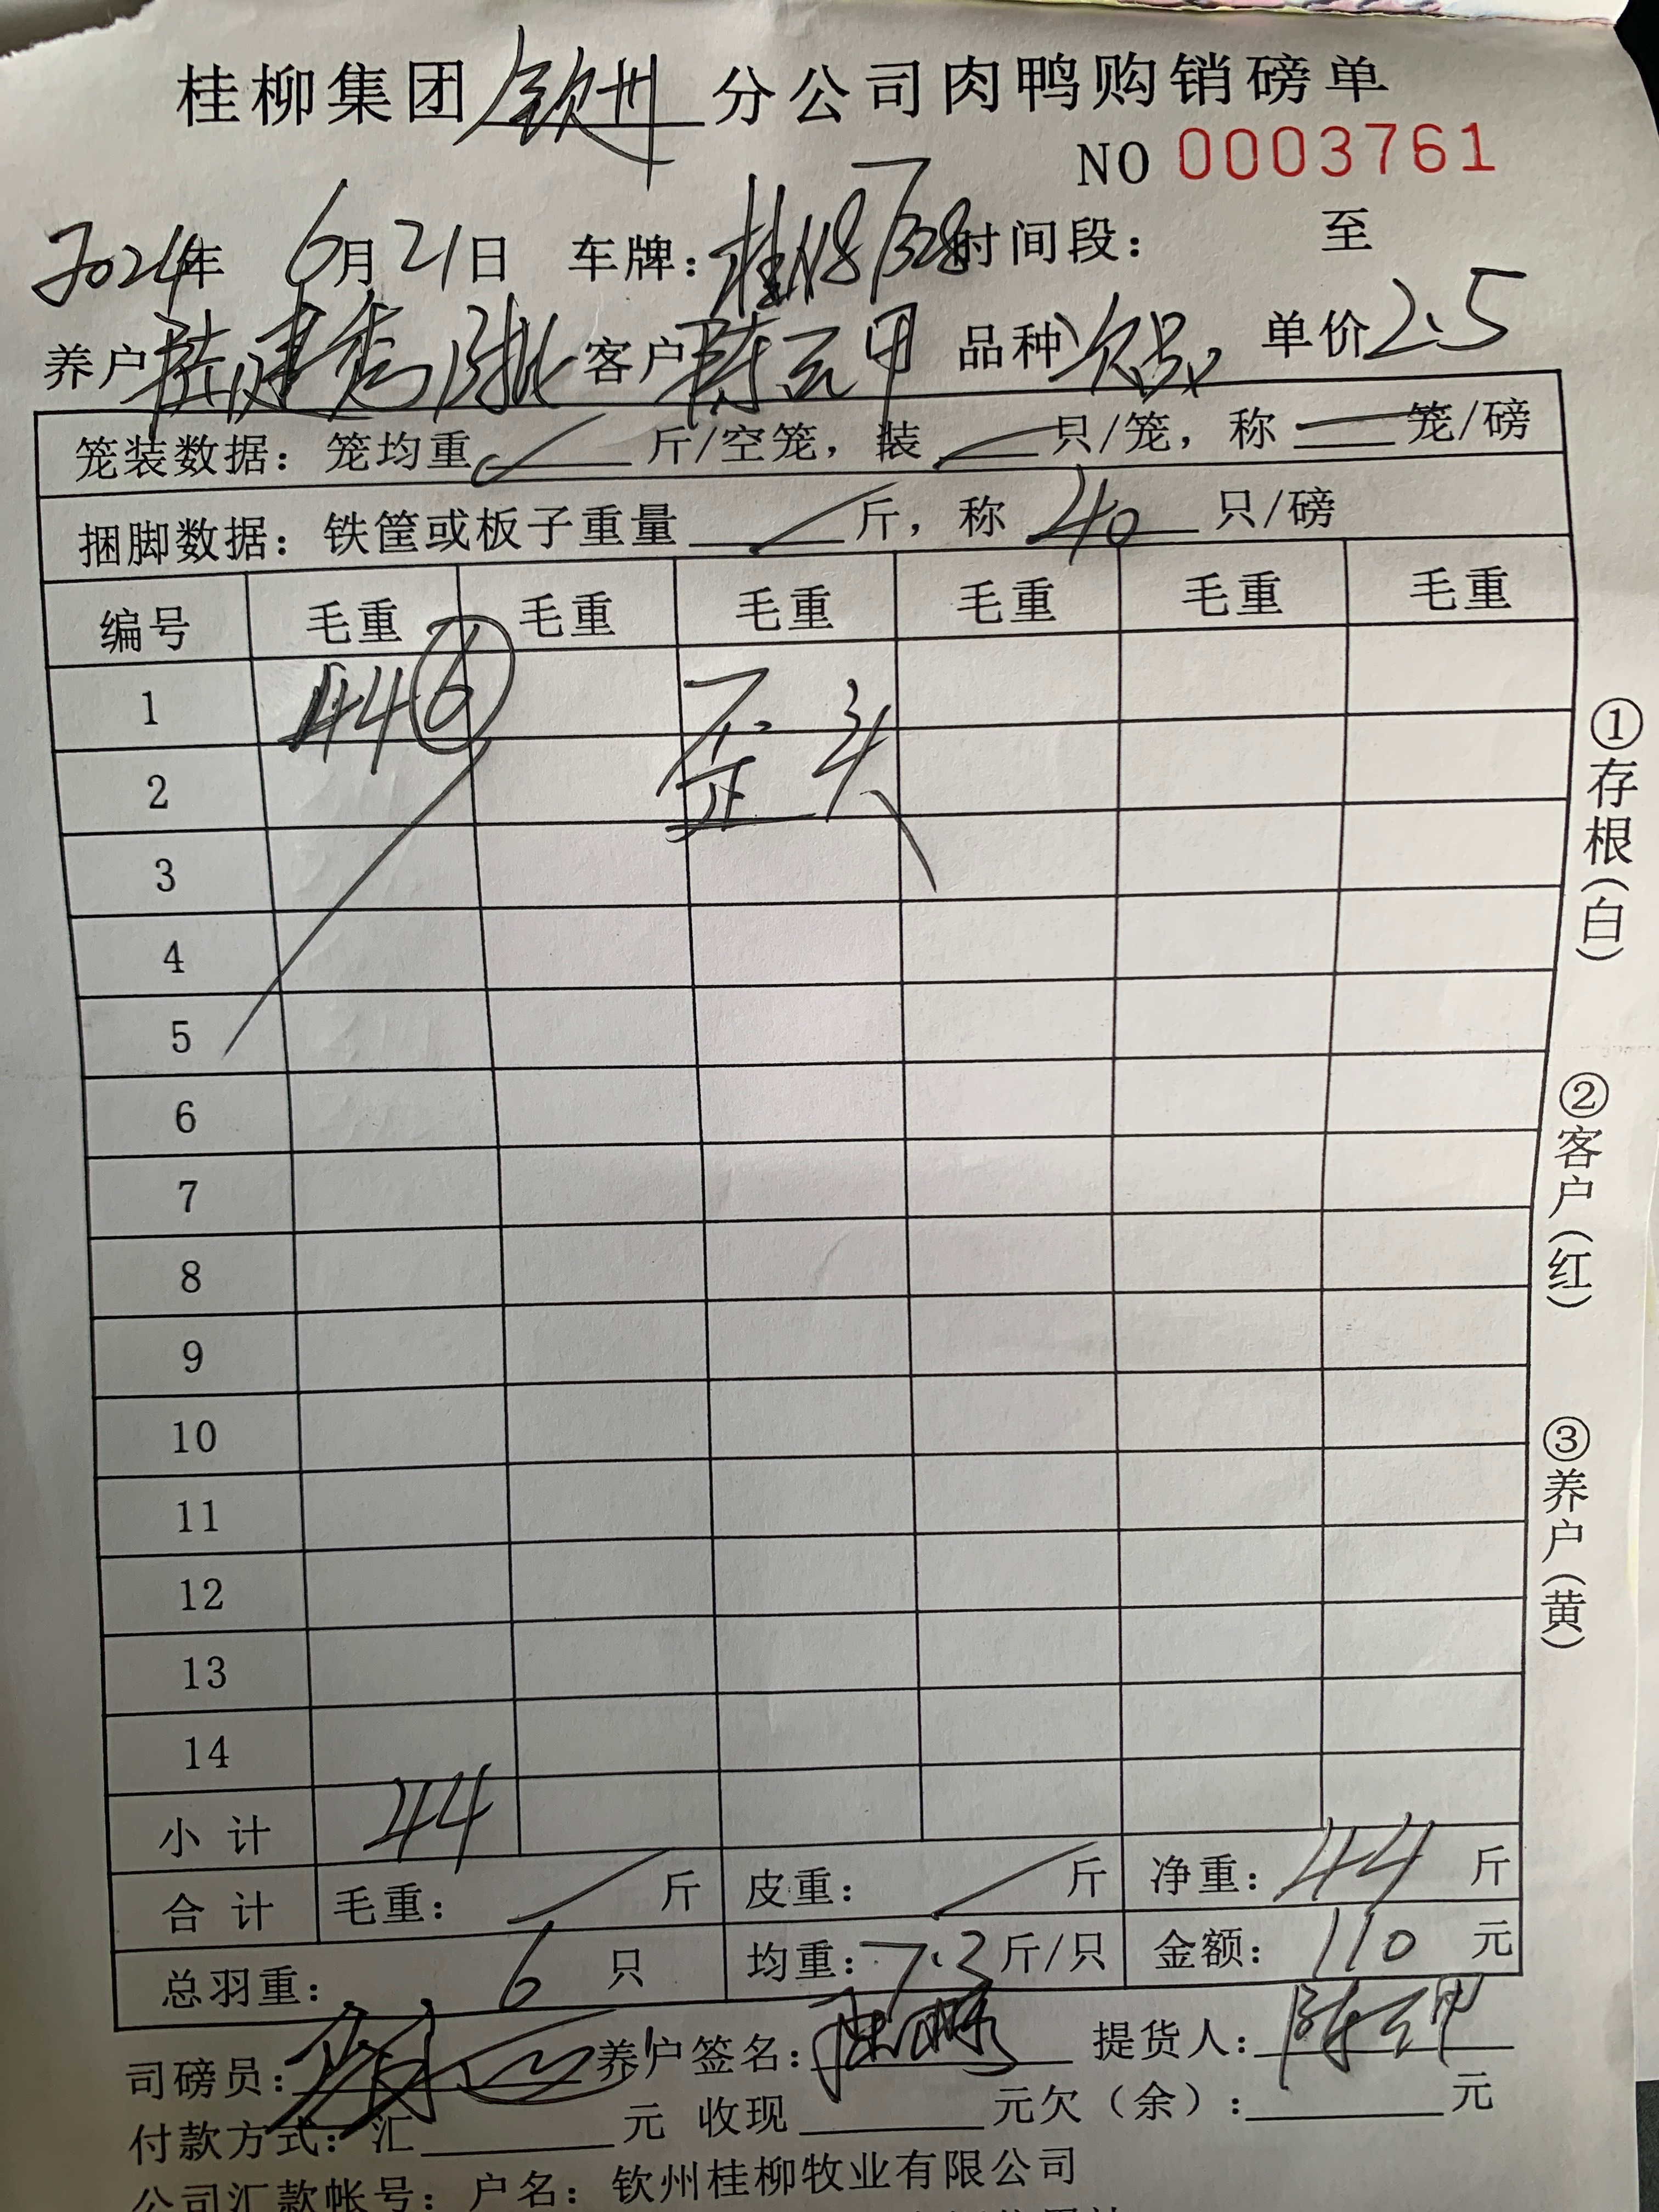 桂柳集团钦州分公司肉鸭购销磅单
NO 0003761
2024年 6月21日 车牌：桂N8 时间段： 至
养户陆建秀 客户陈云甲 品种次品 单价2.5
笼装数据：笼均重 斤/空笼，装 只/笼，称 笼/磅
捆脚数据：铁筐或板子重量 斤，称 40 只/磅
编号 毛重 毛重 毛重 毛重 毛重 毛重
1 44 6 歪头
2
3
4
5
6
7
8
9
10
11
12
13
14
小 计 44
合 计 毛重： 斤 皮重： 斤 净重：44 斤
总羽重： 6 只 均重：7.3斤/只 金额：110 元
司磅员： 养户签名： 提货人：陈云甲
付款方式：汇 元 收现 元欠（余）： 元
公司汇款帐号：户名：钦州桂柳牧业有限公司
①存根(白)
②客户(红)
③养户(黄)